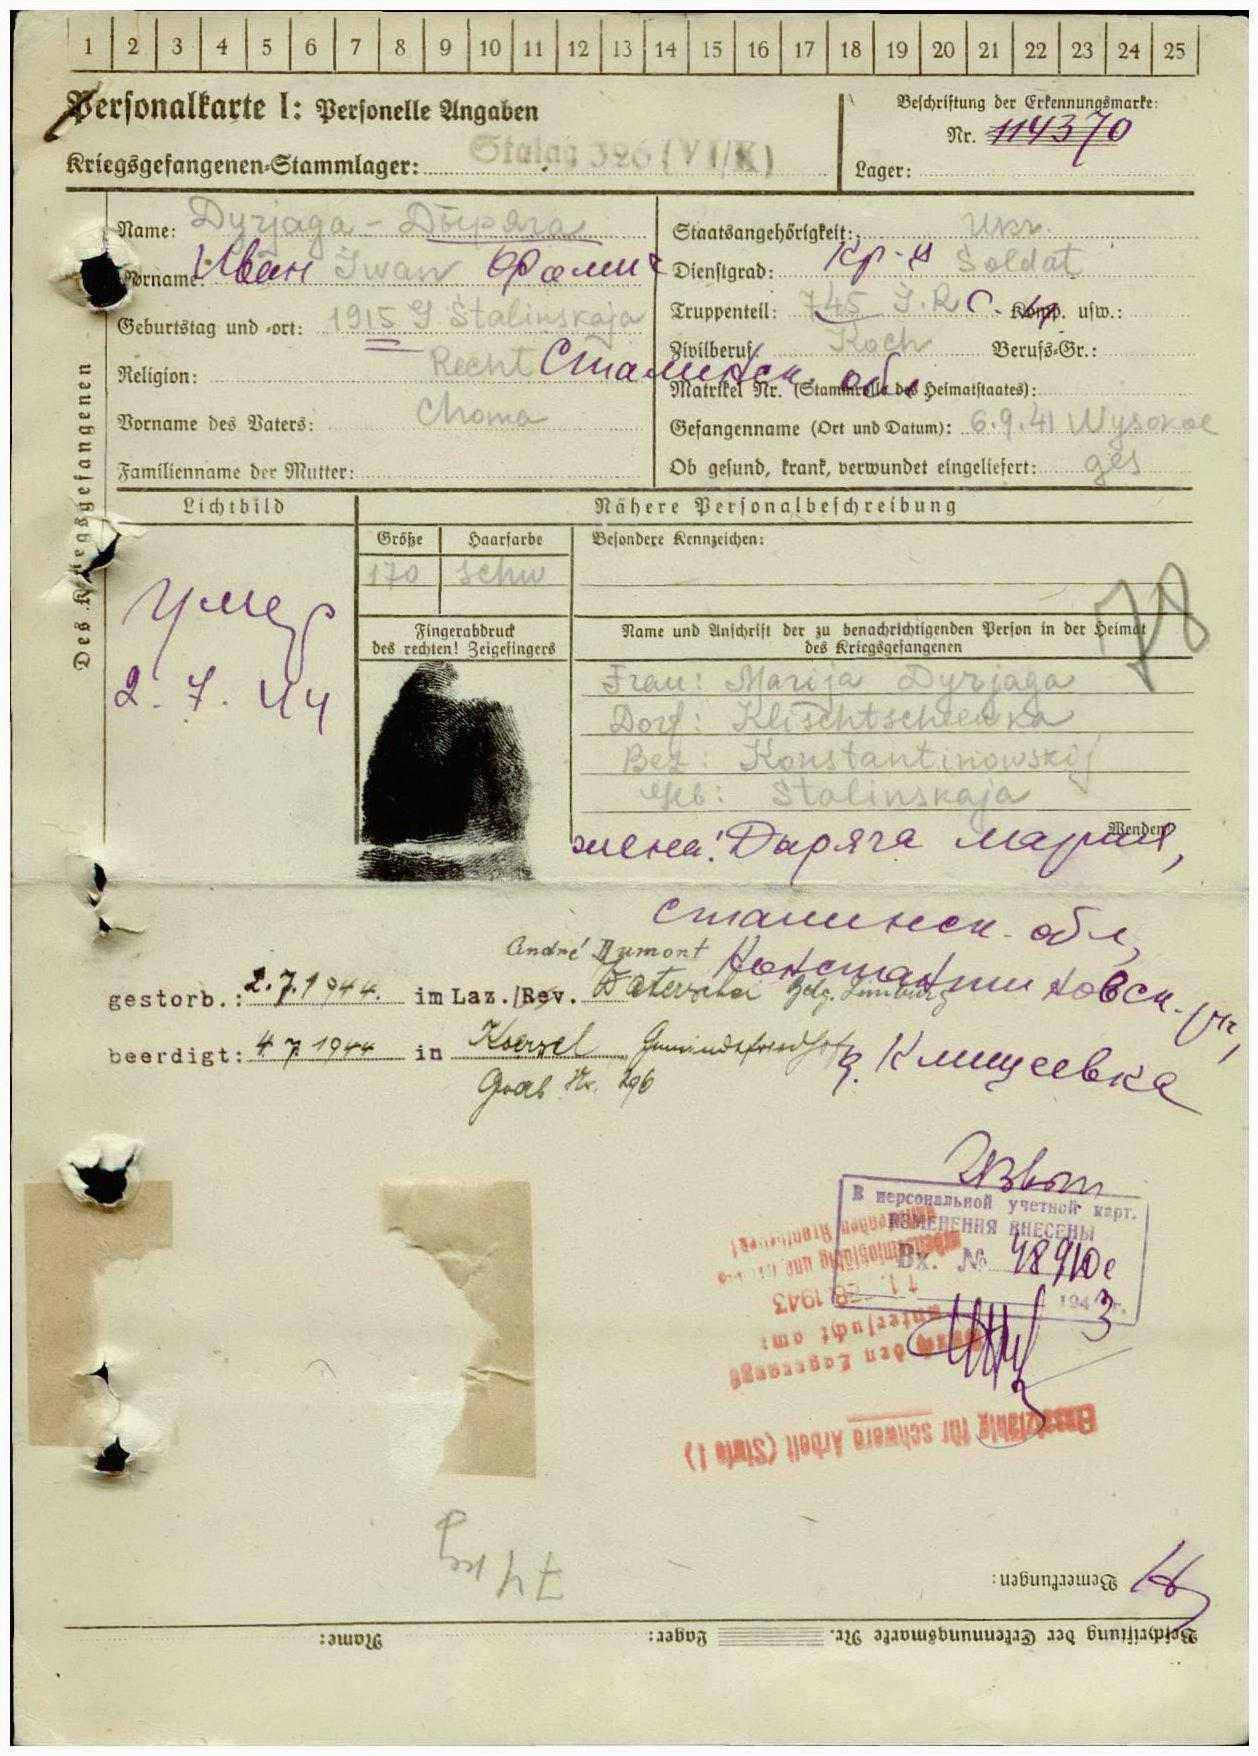 1 2 3 4 5 6 7 8 9 10 11 12 13 14 15 16 17 18 19 20 21 22 23 24 25
Personalkarte I: Personelle Angaben
Beschriftung der Erkennungsmarke:
Nr. 114370
Kriegsgefangenen-Stammlager: Stalag 326 (VI/K)
Lager:
Des Kriegsgefangenen
Name: Dyrjaga - Дыряга
Vorname: Иван Iwan Фомич
Geburtstag und -ort: 1915 Stalinskaja
Сталинск. обл.
Religion: Recht
Vorname des Vaters: Choma
Familienname der Mutter:
Staatsangehörigkeit: Ukr.
Dienstgrad: кр-ц Soldat
Truppenteil: 745 I.R. Komp. usw.:
Zivilberuf: Koch Berufs-Gr.:
Matrikel Nr. (Stammrolle des Heimatstaates):
Gefangenname (Ort und Datum): 6.9.41 Wysokoe
Ob gesund, krank, verwundet eingeliefert: ges
Lichtbild
Nähere Personalbeschreibung
Größe Haarfarbe Besondere Kennzeichen:
170 schw
умер
2.7.44
Fingerabdruck
des rechten! Zeigefingers
Name und Anschrift der zu benachrichtigenden Person in der Heimat
des Kriegsgefangenen
78
Frau: Marija Dyrjaga
Dorf: Klischtschewka
Bez: Konstantinowskij
Geb: Stalinskaja
Wenden
жена: Дыряга Мария,
Сталинск. обл,
Константиновск. р-н,
д. Клищеевка
André Dumont
gestorb.: 2.7.1944. im Laz./Rev. Waterschei Belg. Limburg
beerdigt: 4.7.1944 in Koersel Gemeindefriedhof
Grab Nr. 296
В персональной учетной карт.
ИЗМЕНЕНИЯ ВНЕСЕНЫ
Вх. № 48910с
194 3 г.
Einsatzfähig für schwere Arbeit (Stufe I)
durch den Lagerarzt
untersucht am:
1943
74 kg
Bemerkungen:
Beschriftung der Erkennungsmarke Nr. Lager: Name: